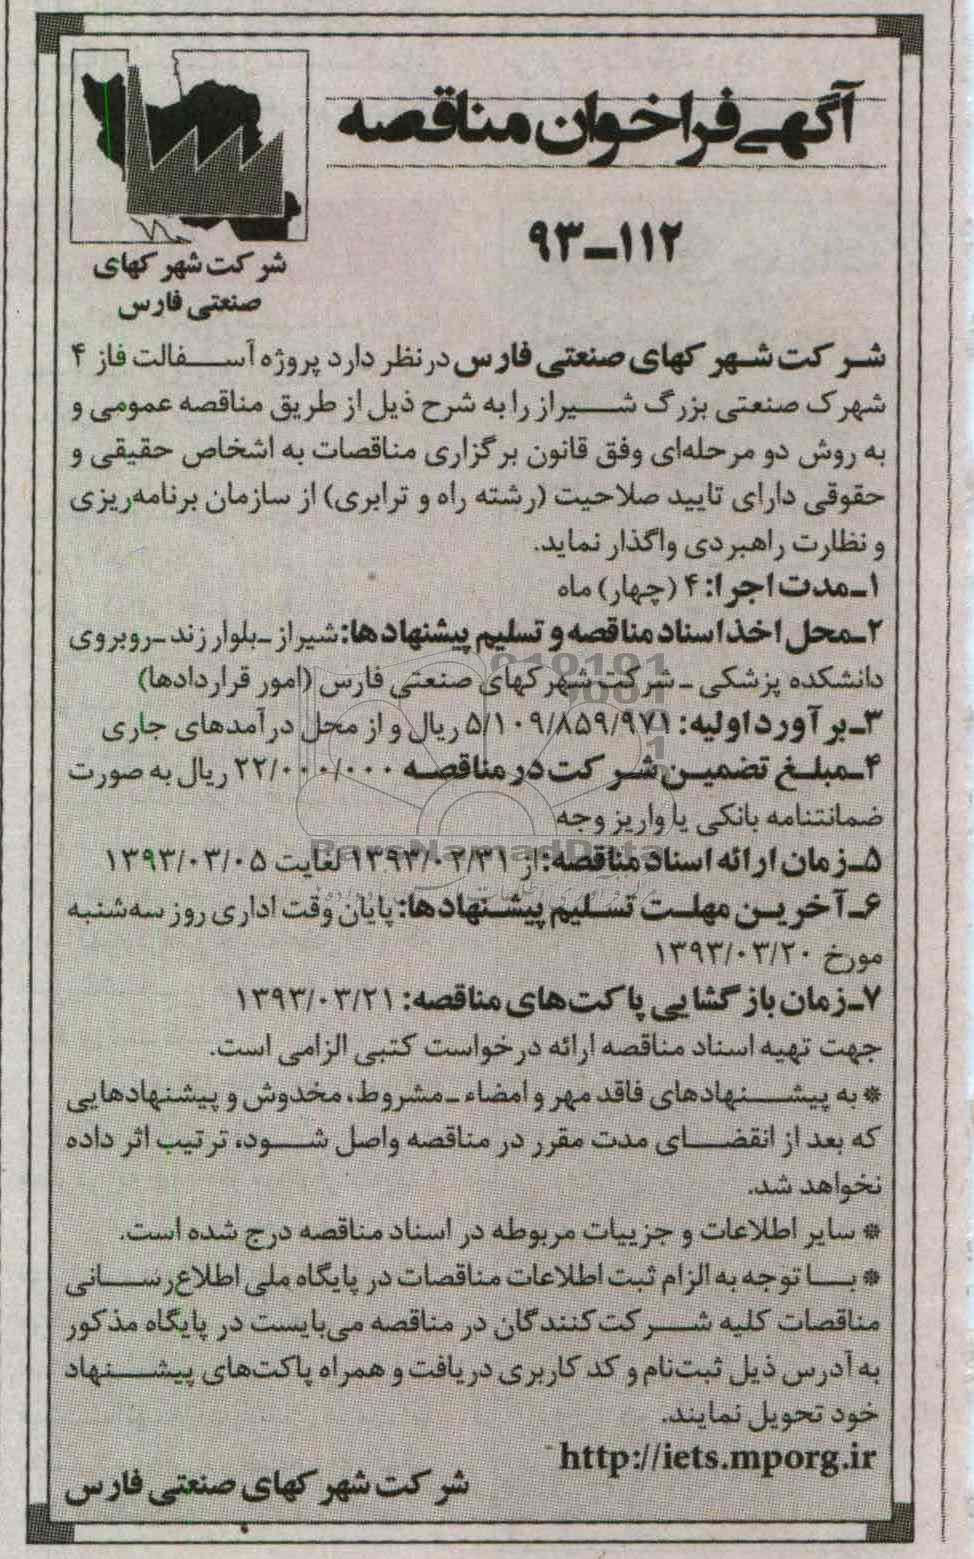 آگهی فراخوان مناقصه
۹۳-۱۱۲
شرکت شهرکهای
صنعتی فارس
شرکت شهرکهای صنعتی فارس درنظر دارد پروژه آسفالت فاز ۴
شهرک صنعتی بزرگ شیراز را به شرح ذیل از طریق مناقصه عمومی و
به روش دو مرحله‌ای وفق قانون برگزاری مناقصات به اشخاص حقیقی و
حقوقی دارای تایید صلاحیت (رشته راه و ترابری) از سازمان برنامه‌ریزی
و نظارت راهبردی واگذار نماید.
۱ـ مدت اجرا: ۴ (چهار) ماه
۲ـ محل اخذ اسناد مناقصه و تسلیم پیشنهادها: شیراز ـ بلوار زند ـ روبروی
دانشکده پزشکی ـ شرکت شهرکهای صنعتی فارس (امور قراردادها)
۳ـ برآورد اولیه: ۵/۱۰۹/۸۵۹/۹۷۱ ریال و از محل درآمدهای جاری
۴ـ مبلغ تضمین شرکت در مناقصه ۲۲/۰۰۰/۰۰۰ ریال به صورت
ضمانتنامه بانکی یا واریز وجه
۵ـ زمان ارائه اسناد مناقصه: از ۱۳۹۳/۰۲/۳۱ لغایت ۱۳۹۳/۰۳/۰۵
۶ـ آخرین مهلت تسلیم پیشنهادها: پایان وقت اداری روز سه‌شنبه
مورخ ۱۳۹۳/۰۳/۲۰
۷ـ زمان بازگشایی پاکت‌های مناقصه: ۱۳۹۳/۰۳/۲۱
جهت تهیه اسناد مناقصه ارائه درخواست کتبی الزامی است.
* به پیشنهادهای فاقد مهر و امضاء ـ مشروط، مخدوش و پیشنهادهایی
که بعد از انقضای مدت مقرر در مناقصه واصل شود، ترتیب اثر داده
نخواهد شد.
* سایر اطلاعات و جزییات مربوطه در اسناد مناقصه درج شده است.
* با توجه به الزام ثبت اطلاعات مناقصات در پایگاه ملی اطلاع‌رسانی
مناقصات کلیه شرکت‌کنندگان در مناقصه می‌بایست در پایگاه مذکور
به آدرس ذیل ثبت‌نام و کد کاربری دریافت و همراه پاکت‌های پیشنهاد
خود تحویل نمایند.
http://iets.mporg.ir
شرکت شهرکهای صنعتی فارس
ParsNamadData